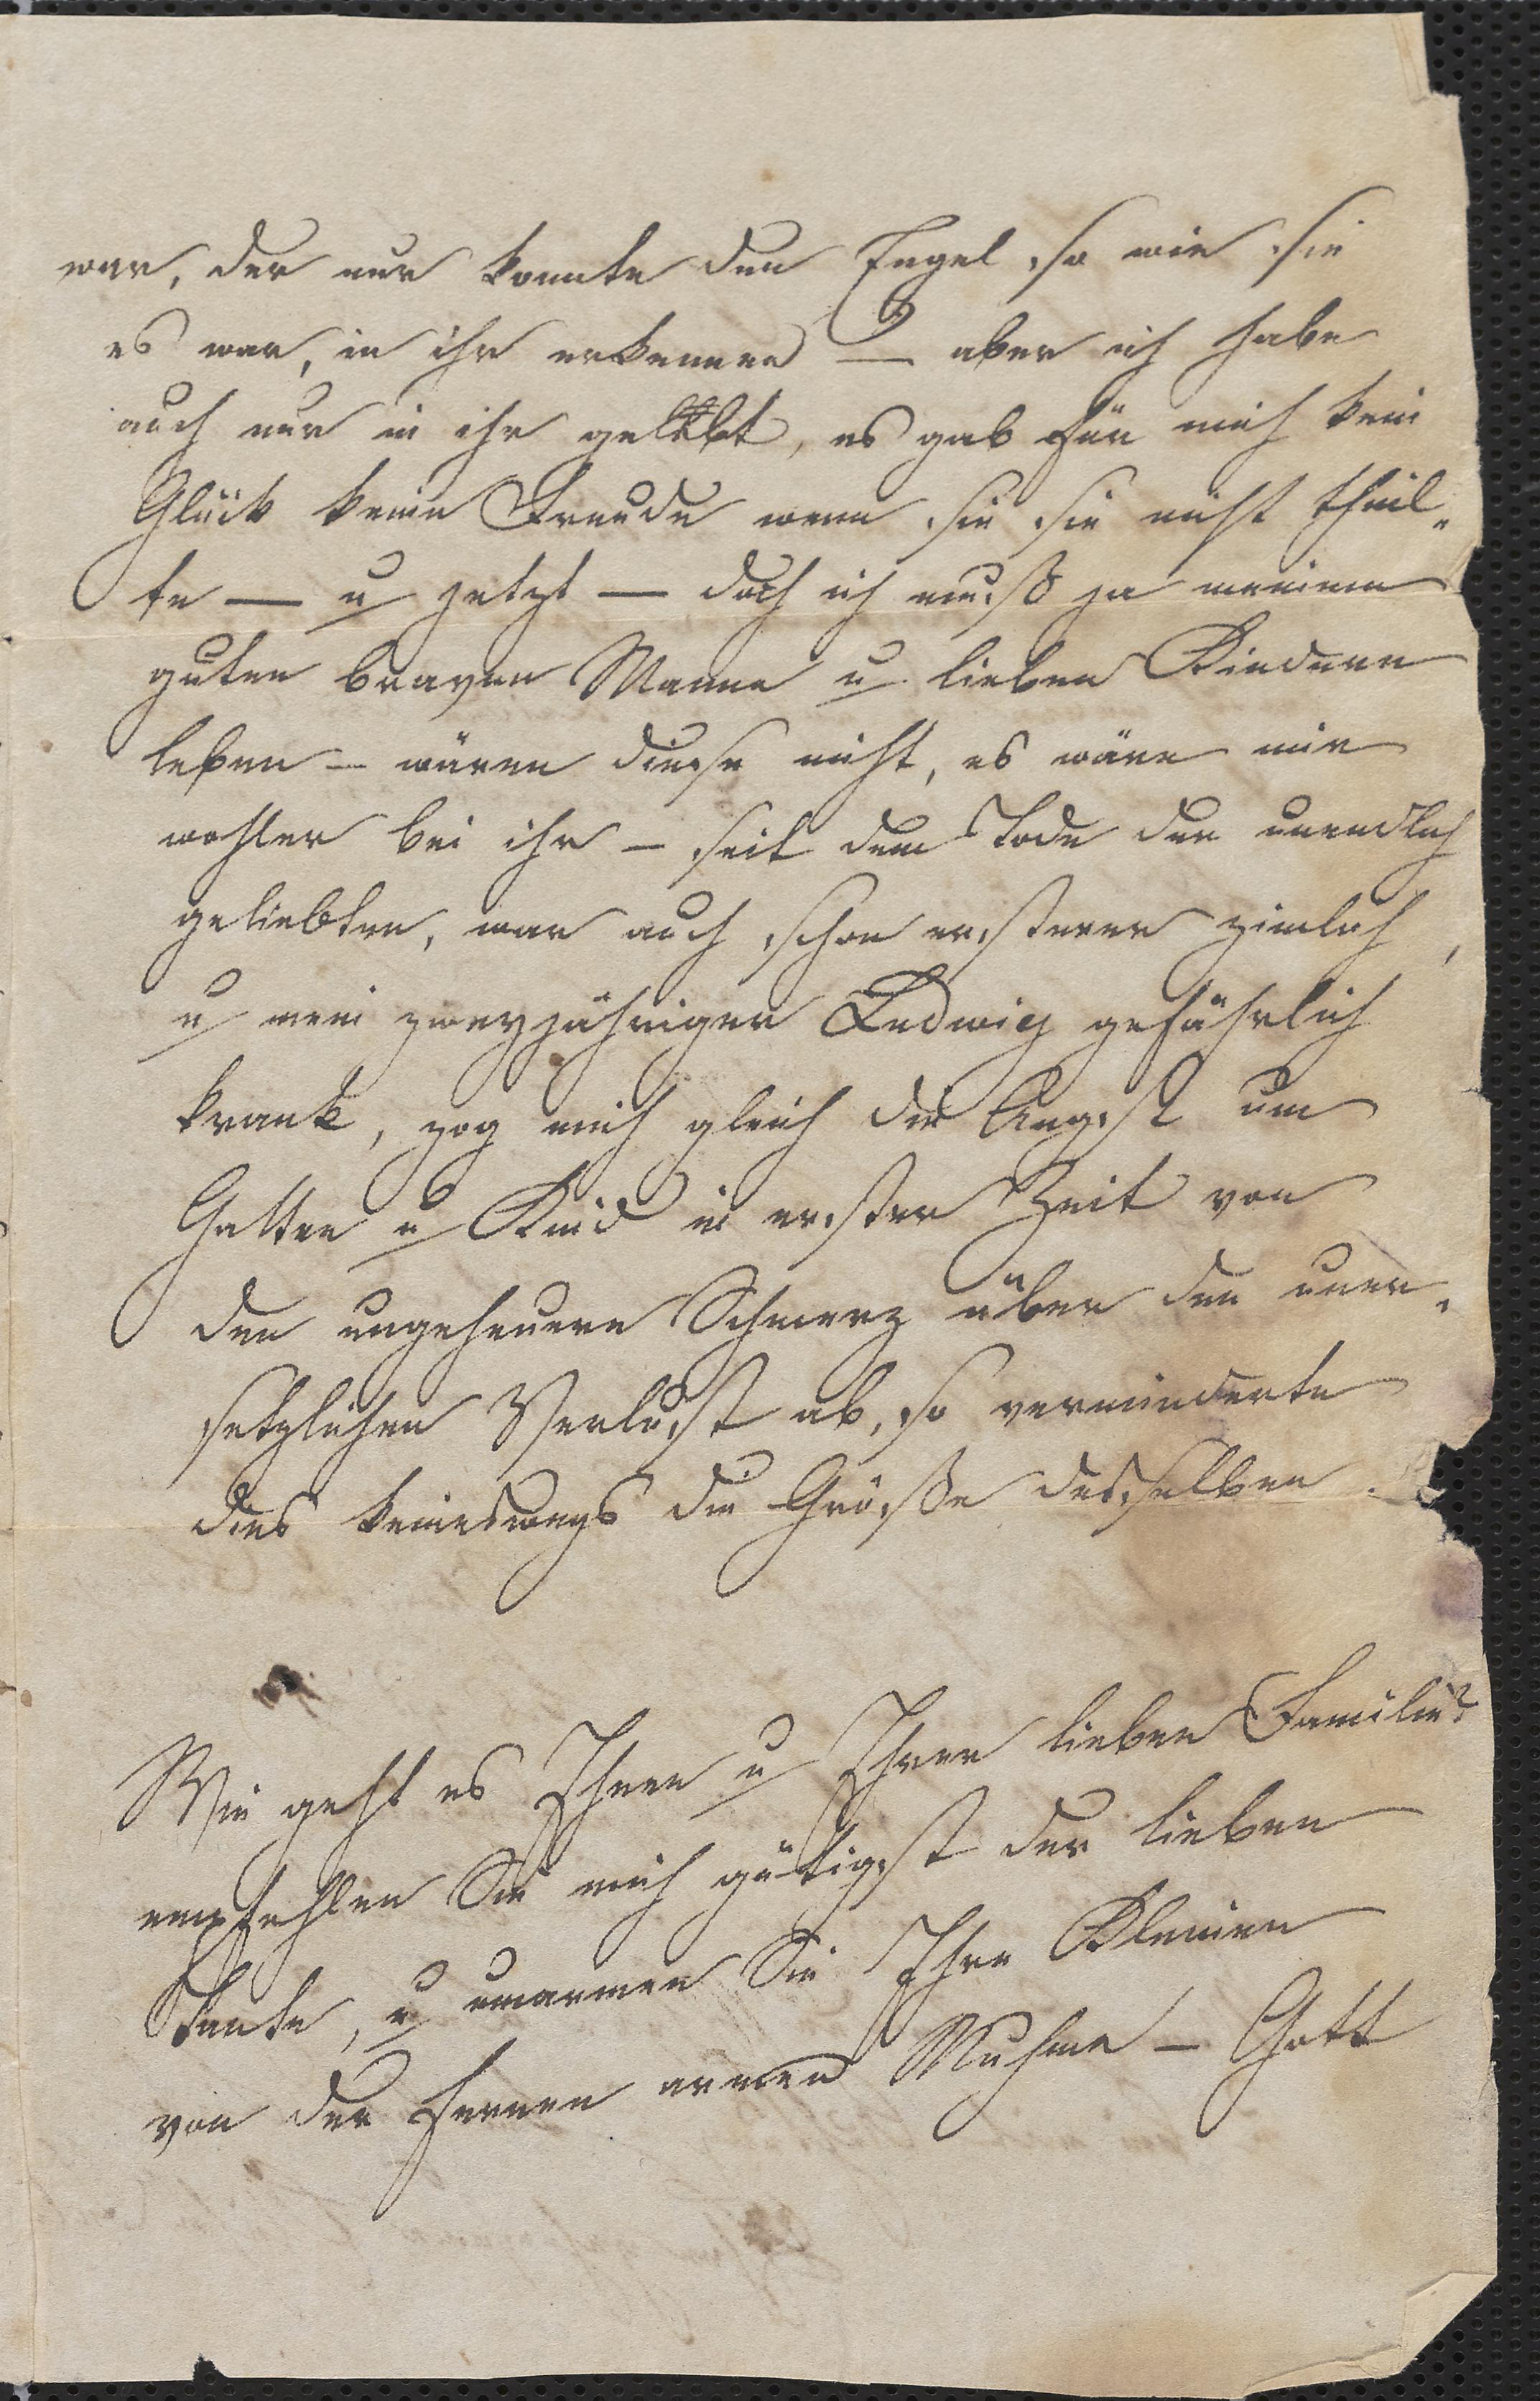 war, der nur konnte den Engel so wie sie
es war, in ihr erkennen — aber ich habe
auch nur in ihr gelebt, es gab für mich kein
Glück keine Freude wenn sie sie nicht theil„
te — u jetzt — doch ich muß ja meinem
guten braven Manne u lieben Kindern
leben — wären diese nicht, es wäre mir
wohler bei ihr — seit dem Tode der unendlich
geliebten, war auch schon ersterer zimlich,
u mein zweyjähriger Ludwig gefährlich
krank, zog mich gleich die Angst um
Gatten u Kind in erster Zeit von
den ungeheuern Schmerz über den uner„
setzlichen Verlust ab, so verminderte
dies keineswegs die Größe desselben.
Wie geht es Ihnen u Ihrer lieben Familie?
empfehlen Sie mich gütigst der lieben
Tante, u umarmen Sie Ihre Kleinen
von der fernen armen Muhme — Gott